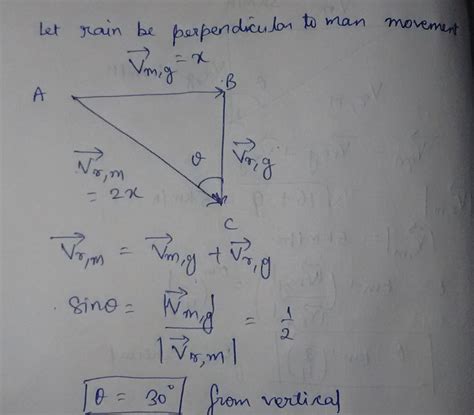 Let rain be perpendicular to man movement
V⃗m,g = x
A
B
V⃗r,m
= 2x
θ
V⃗r,g
C
V⃗r,m = V⃗m,g + V⃗r,g
Sinθ = |V⃗m,g| / |V⃗r,m| = 1/2
θ = 30° from vertical